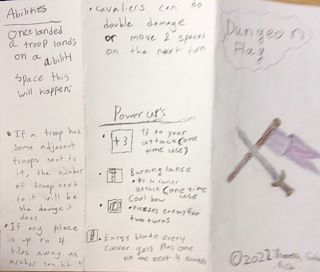 Abilities
Once landed
a troop lands
on a ability
space this
will happen:
• If a troop has
some adjacent
troops next to
it, the number
of troop next
to it will be
the damage it
does
• If any piece
is up to 4
tiles away an
archer can hit it
• Cavaliers can do
double damage
or move 2 spaces
on the next turn
Power ur's
• +3 +3 to your
attack (one
time use)
• Burning lance
attack (one time
use
• Cool bow
enemy for
two turns
• Energy blade every
plus one
till the next 4 rounds
Dungeon
Flag
©2022